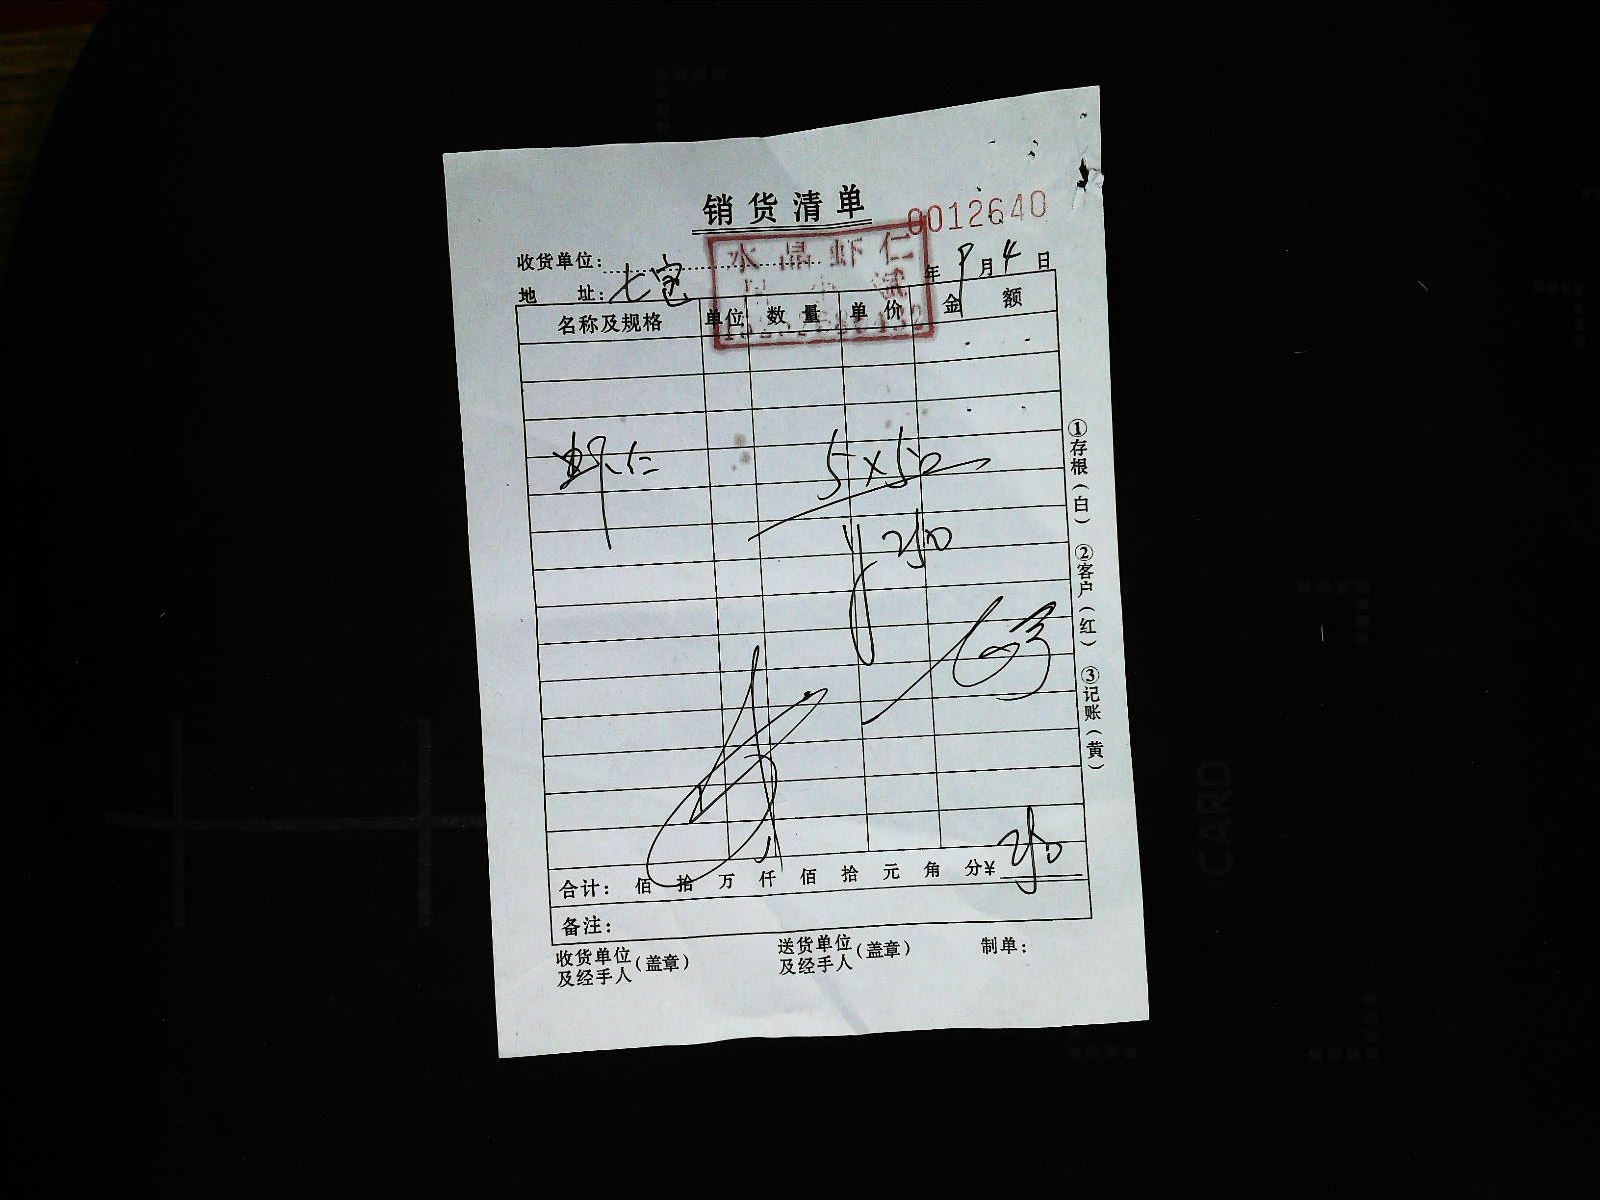 销货清单
0012640
水晶虾仁
收货单位: 七宝
年 9月4日
地 址:
名称及规格 单位 数量 单价 金 额
虾仁 5×50
¥250
合计: 佰 拾 万 仟 佰 拾 元 角 分¥ 250
备注:
收货单位及经手人(盖章) 送货单位及经手人(盖章) 制单:
①存根(白) ②客户(红) ③记账(黄)
CARD